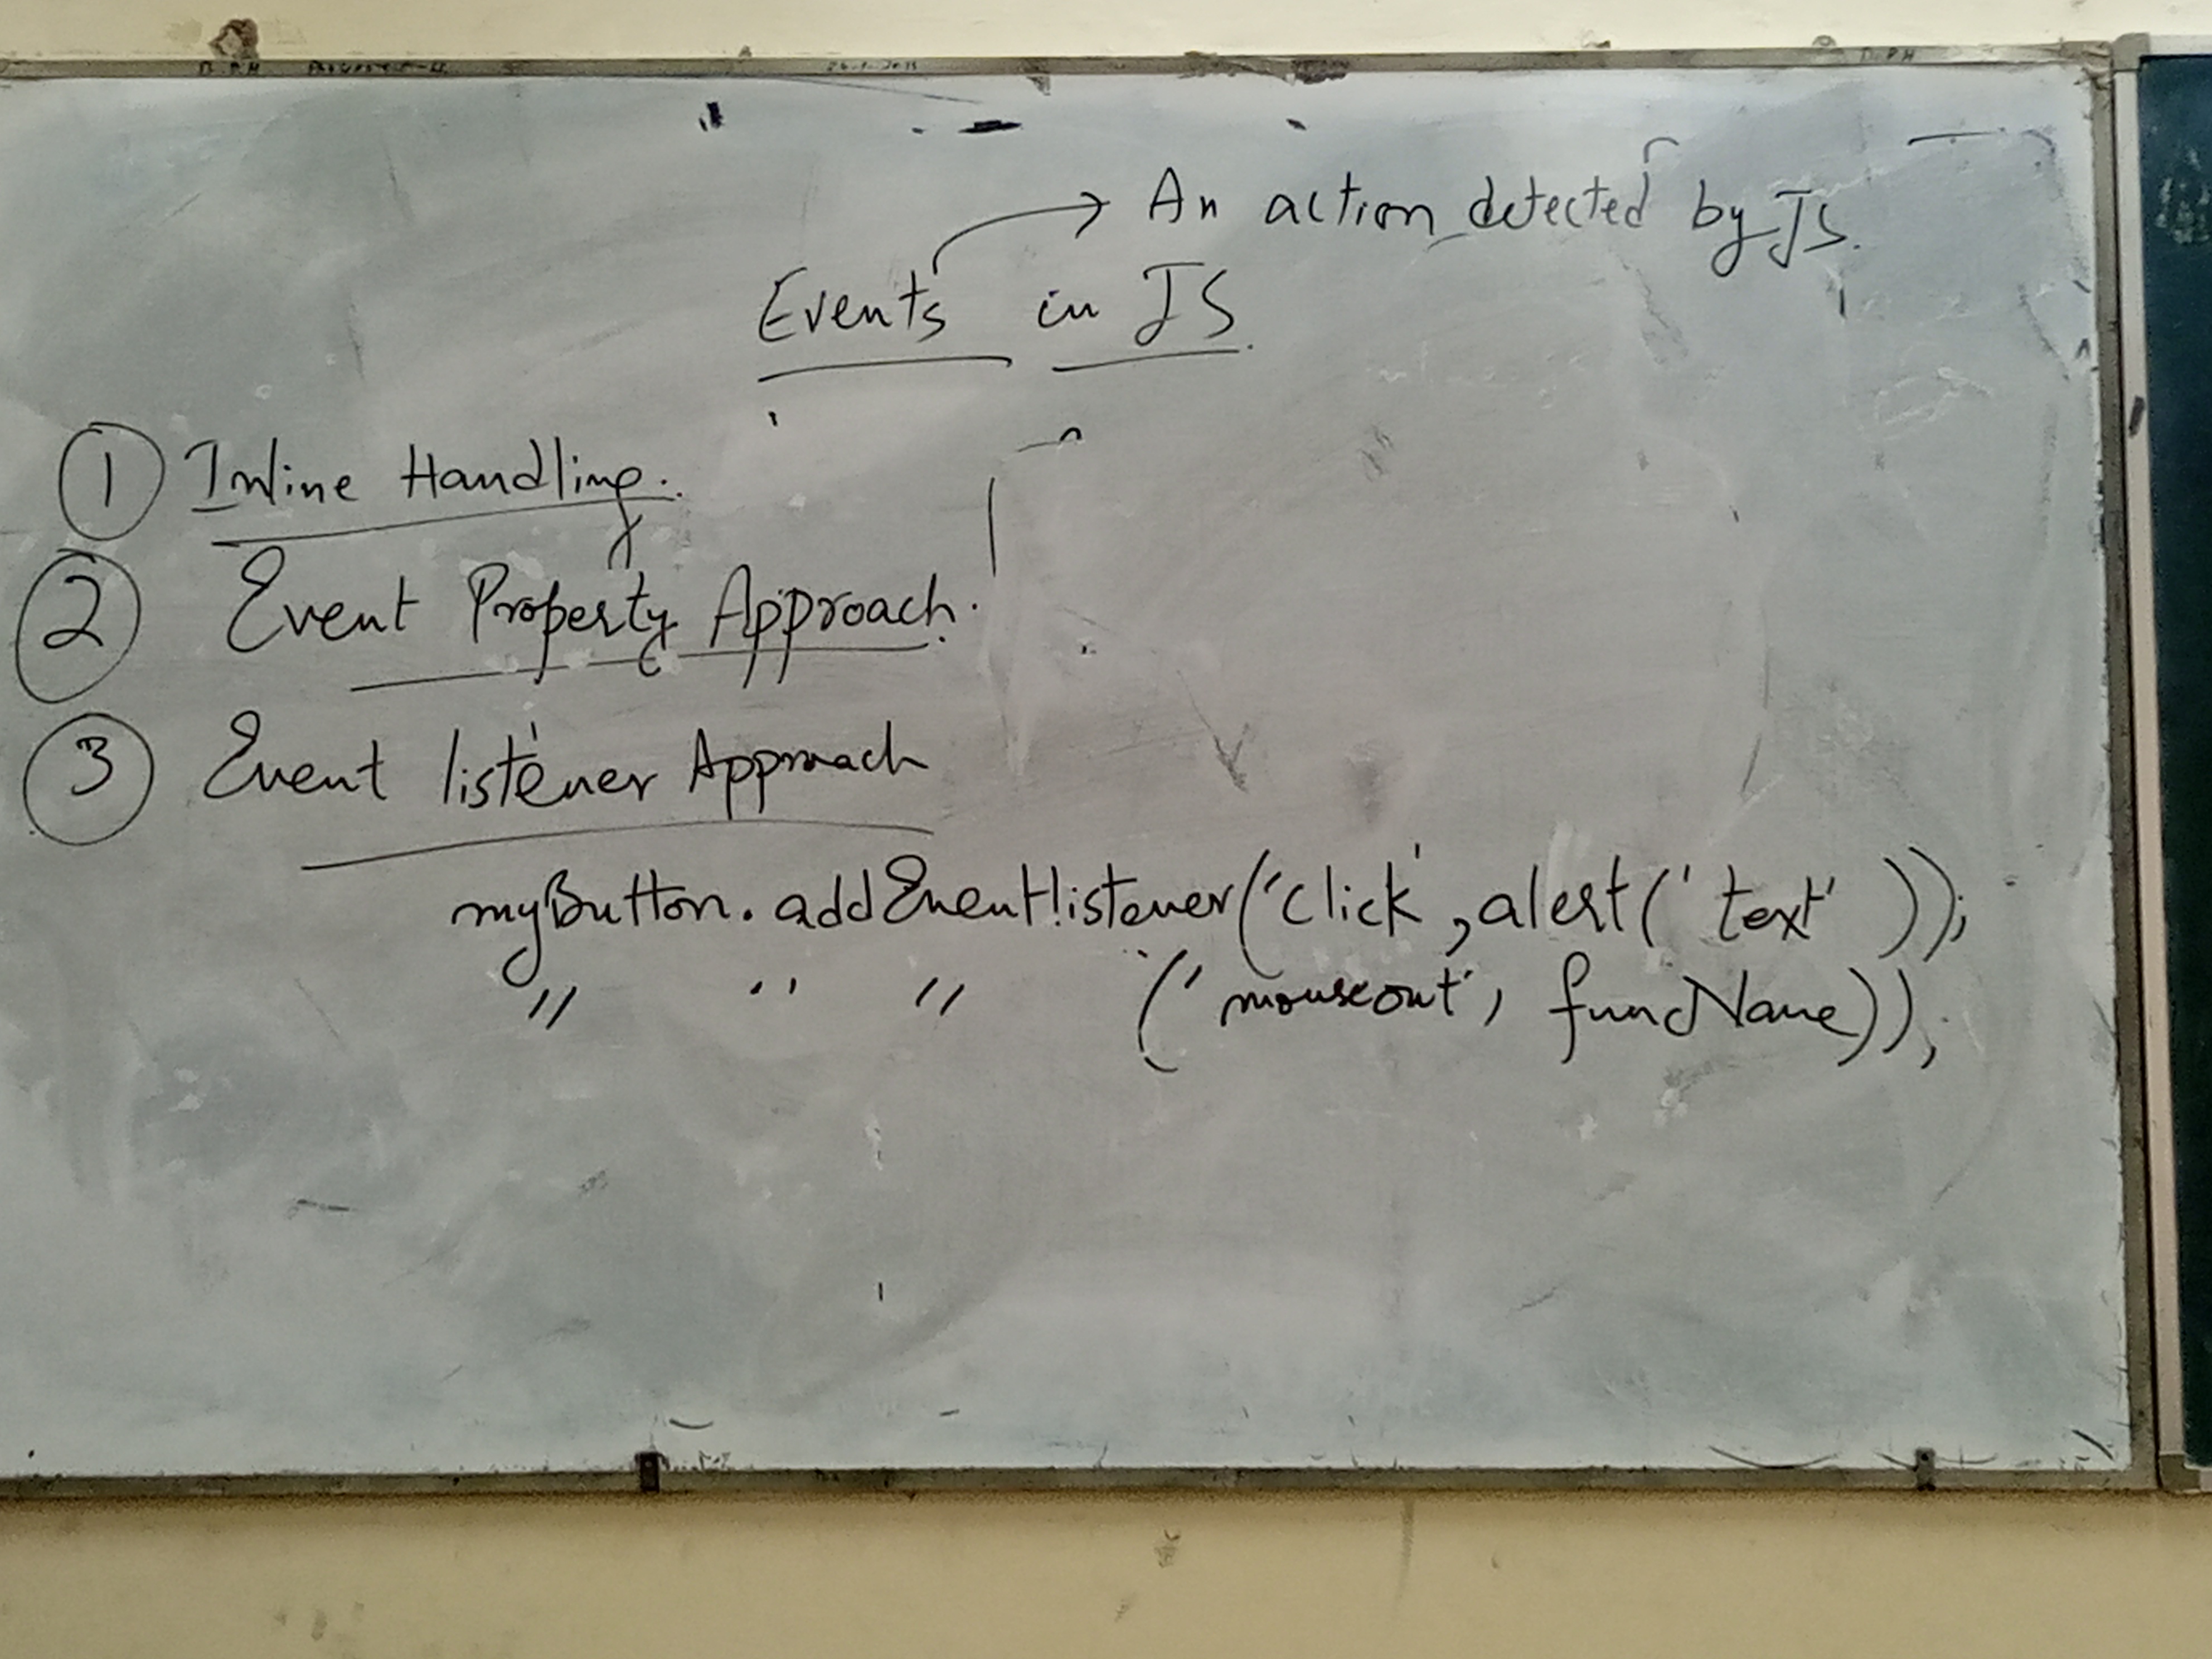 An action detected by JS.
Events in JS.
1 Inline Handling.
2 Event Property Approach.
3 Event listener Approach
myButton.addEventlistener('click', alert('text'));
" " " ('mouseout', funcName));